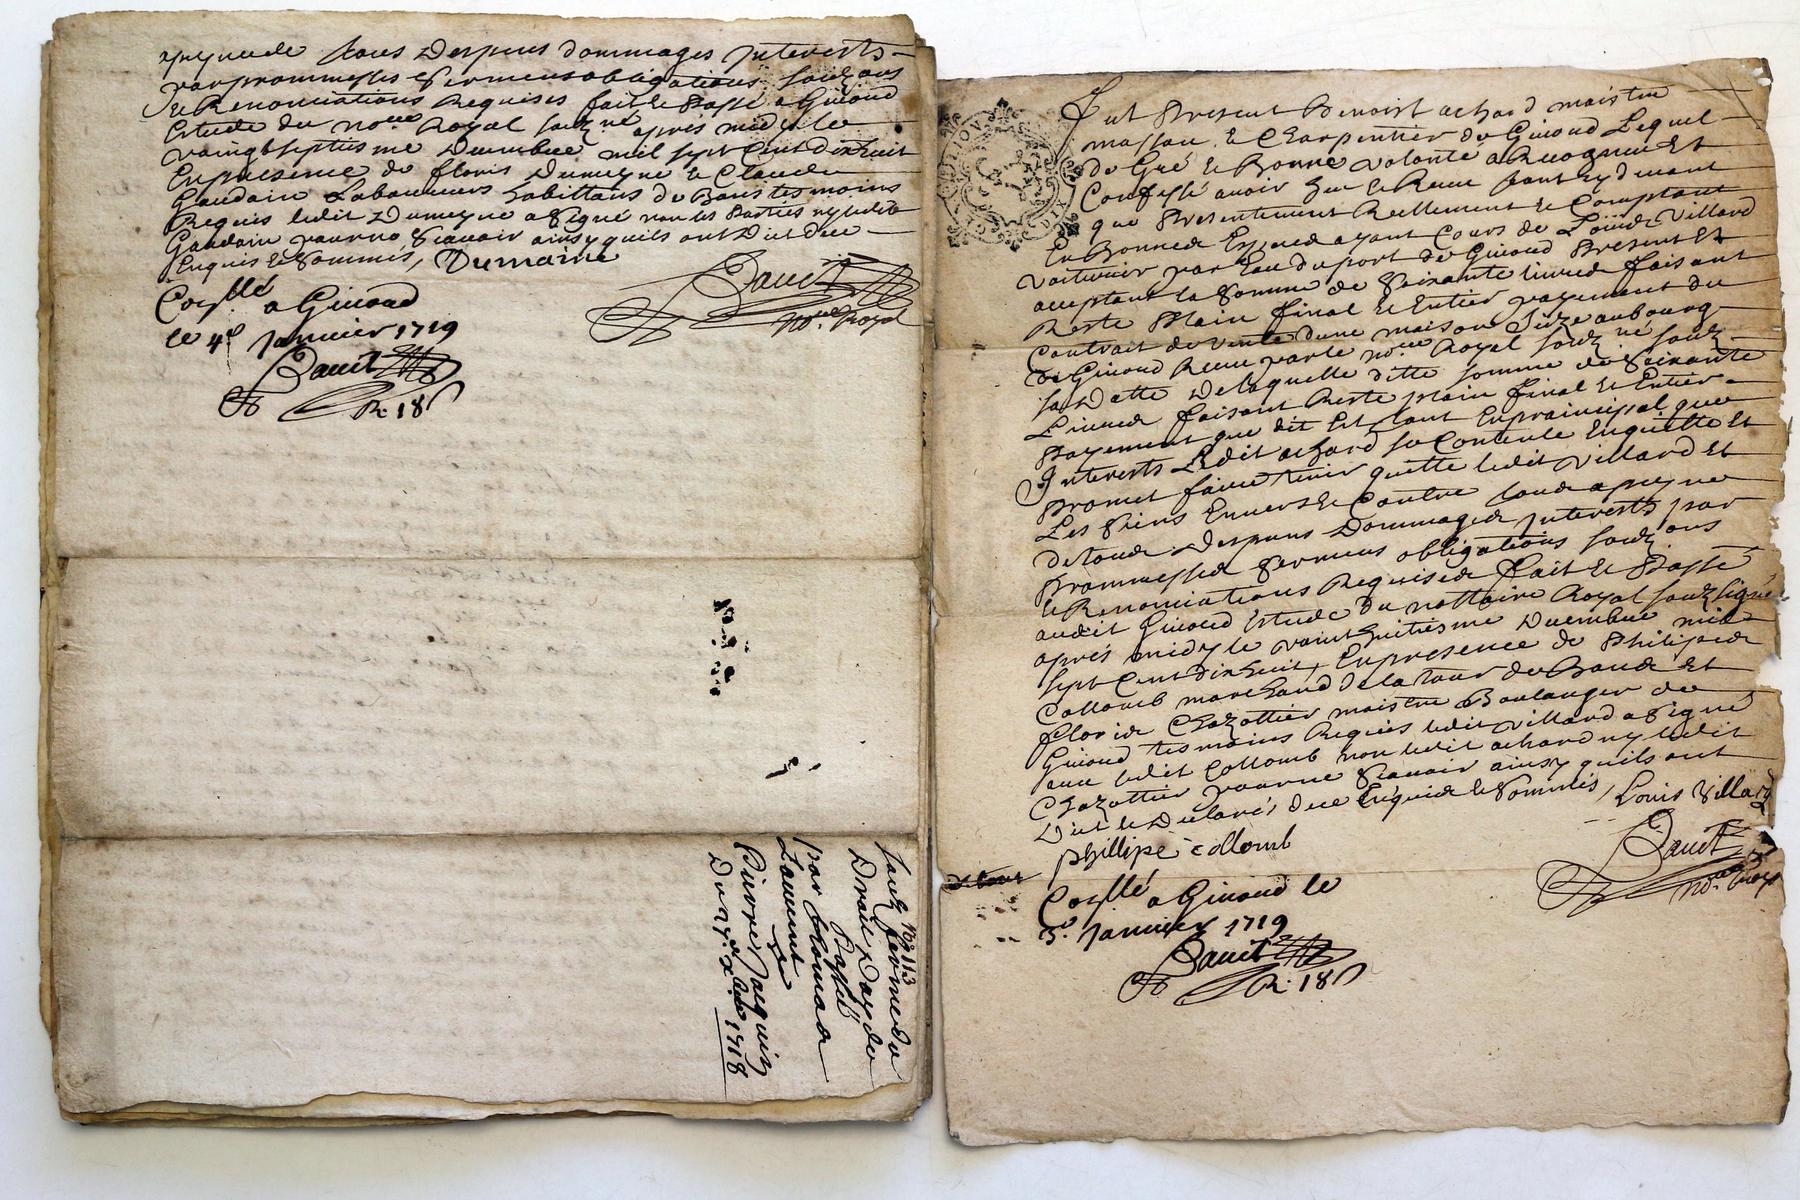 tous Despens dommages Interests
par prommesses & sermens obligations soubz ons
& Renonciations Requises fait & Passé a Giuord
Estude du no.re Royal soubz.né apres midy le
vaingtseptiesme Decembre mil sept Cent dixhuit
En presence de floris Dumeyne & Claude
Gaudain Laboureurs habittans de Bans tesmoins
Requis ledit Dumeyne a signé non les Parties ny ledit
Gaudain pour ne scauoir ainsy quils ont Dict de ce
Enquis & sommis, Dumaine
Cor.llé a Giuord
le 4.e Januier 1719
no.re Royal
R. 18 s
No 113
soubz ferme du
Droit
Passé
par
Laurent
a
Pierre Jaquin
Du 27.e x.bre 1718
fut Present Benoist achard maistre
masson & Charpentier de Giuord Lequel
de Gré & Bonne volonté a Recogneu Et
Confessé auoir heu & Receu tant cydeuant
que Presentement Reellement & Comptant
En Bonnes Especes ayant Cours de Louis Villard
voiturier par Eau du port de Giuord Present Et
acceptant la somme de soixante liures faisant
Reste Plain final & Entier payement du
Contrait de vente dune maison size au bourg
de Giuord Receu par le no.re Royal soubz.né soubz
sa Datte De laquelle ditte somme de soixante
Liures faisant Reste plain final & Entier
Payement que dit Est tant En prainsipal que
Interests Ledit achard se Contente Enquitte Et
Promet faire tenir quitte ledit villard Et
Les siens Enuers & Contre tous a peyne
de tous Despens Dommages Interests par
Prommesses sermens obligations soubz ons
& Renonciations Requises fait & Passé
audit Giuord Estude du nottaire Royal soubzsigné
apres midy le vaint huitiesme Decembre mil
sept Cent dixhuit, En presence de Philipes
Collomb marchand de la tour de Bans Et
floris Chazottier maistre Boulanger de
Giuord tesmoins Requis ledit villard a signé
auec ledit Collomb non ledit achard ny ledit
Chazottier pour ne scauoir ainsy quils ont
Dict & Declaré de ce Enquis & sommis, Louis Villard
phillipe collomb
no.re Royal
Cor.llé a Giuord le
3.e Januier 1719
R. 18 s